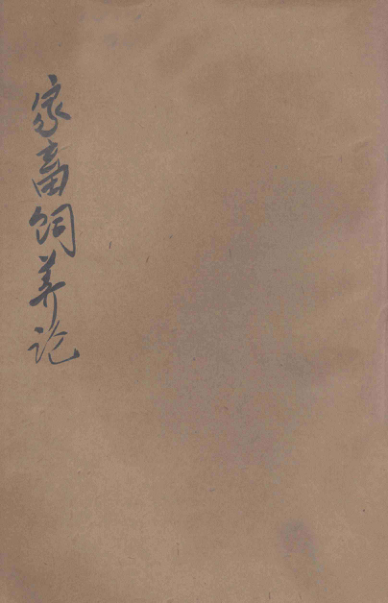 家畜饲养论